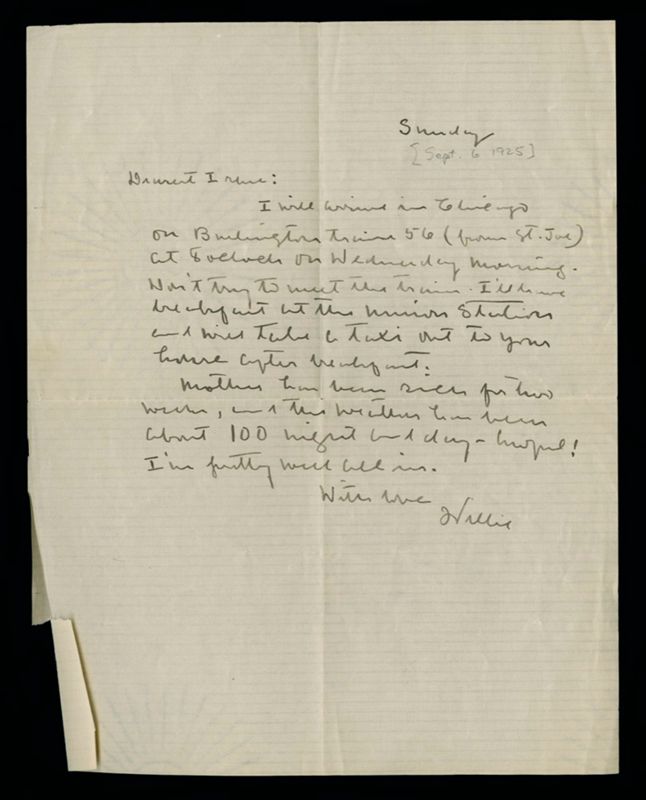 Sunday
[Sept. 6 1925]
Dearest Irene:
I will arrive in Chicago
on Burlington train 56 (from St. Joe)
at 8 o'clock on Wednesday morning.
Don't try to meet the train. I'll have
breakfast at the Union Station
and will take a taxi out to your
house after breakfast.
Mother has been sick for two
weeks, and the weather has been
about 100 night and day - awful!
I'm pretty well all in.
With love
Willie